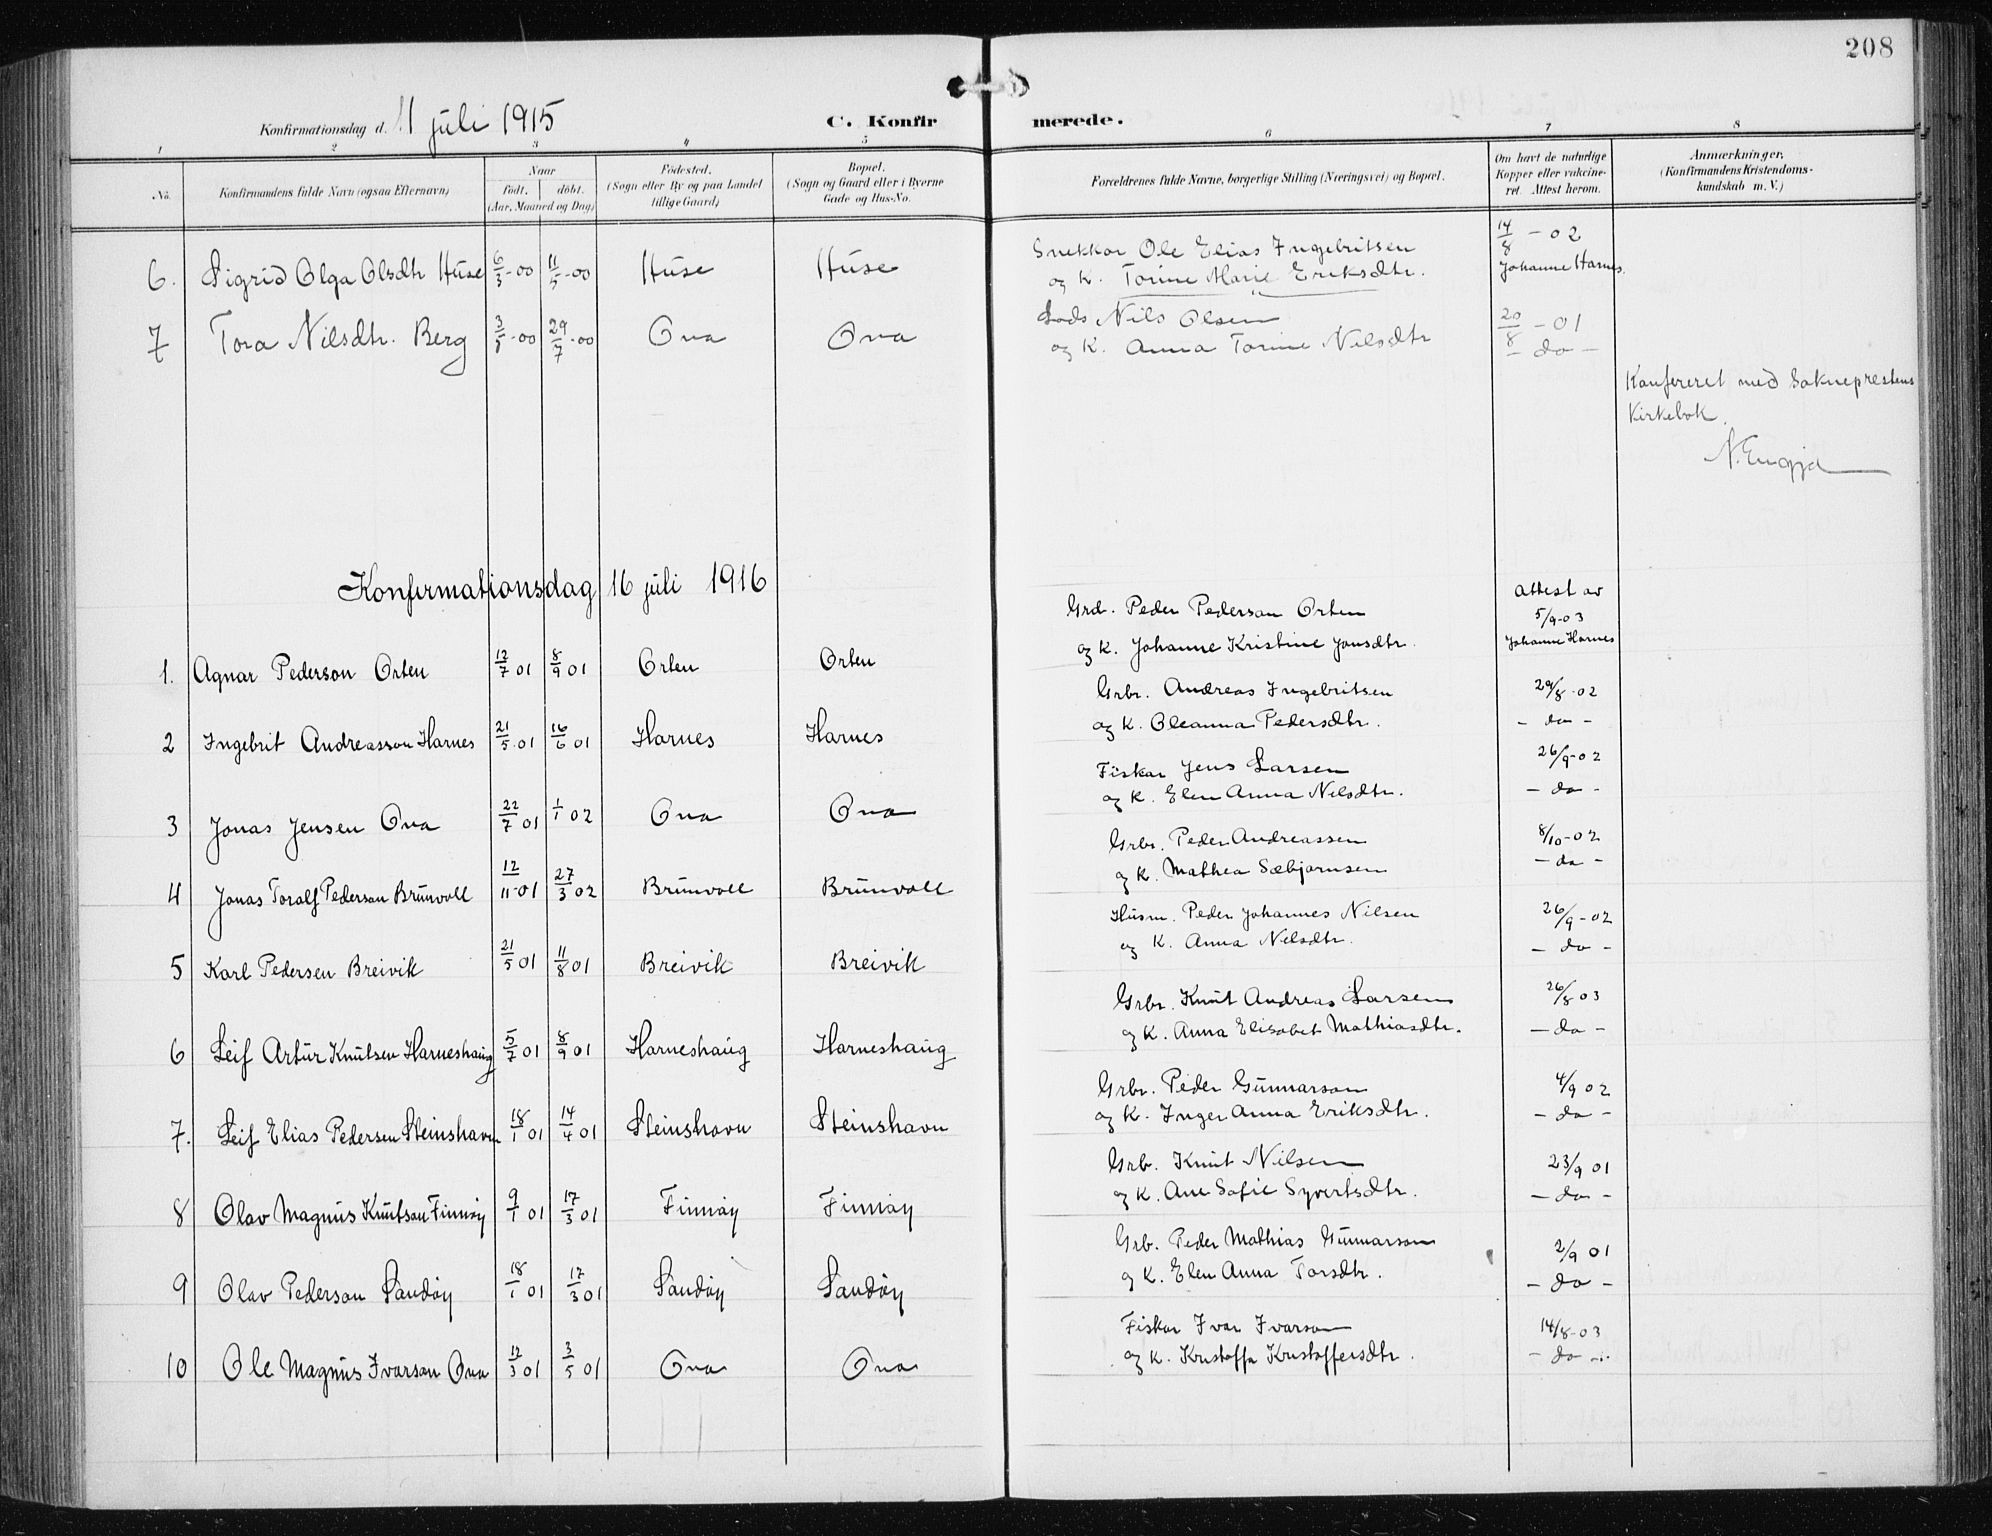 208
Konfirmationsdag d. 11 juli 1915
C. Konfirmerede.
1 2 3 4 5 6 7 8
No. Konfirmandens fulde Navn (ogsaa Efternavn) Naar født. døbt. (Aar, Maaned og Dag) Fødested. (Sogn eller By og paa Landet tillige Gaard) Bopæl. (Sogn og Gaard eller i Byerne Gade og Hus-No. Forældrenes fulde Navne, borgerlige Stilling (Næringsvei) og Bopæl. Om havt de naturlige Kopper eller vakcineret. Attest herom. Anmærkninger. (Konfirmandens Kristendomskundskab m. V.)
6. Sigrid Olga Olsdtr Huse 6/3-00 11/5-00 Huse Huse Snekkar Ole Elias Ingebritsen 14/8-02
og K. Torine Marie Eriksdtr. Johanne Harnes.
7 Tora Nilsdtr. Berg 3/8-00 29/7-00 Ona Ona Lods Nils Olsen 20/8-01
og K. Anna Torine Nilsdtr - do -
Konfereret med Sokneprestens
Kirkebok.
N. Engjd
Konfirmationsdag 16 juli 1916
Attest av
Grd. Peder Pederson Orten 5/9-03
1. Agnar Pederson Orten 12/7 01 8/9 01 Orten Orten og K. Johanne Kristine Jonsdtr. Johanne Harnes
Grbr. Andreas Ingebritsen 29/8-02
2 Ingebrit Andreasson Harnes 21/5 01 16/6 01 Harnes Harnes og K. Oleanna Pedersdtr. - do -
Fiskar Jens Larsen 26/9-02
3 Jonas Jensen Ona 22/7 01 1/1 02 Ona Ona og K. Elen Anna Nilsdtr. - do -
Grbr. Peder Andreassen 8/10-02
4 Jonas Toralf Pederson Brunvoll 12/11-01 27/3 02 Brunvoll Brunvoll og K. Mathea Sæbjørnsen - do -
Husm. Peder Johannes Nilsen 26/9-02
5 Karl Pedersen Breivik 21/5 01 11/8 01 Breivik Breivik og K. Anna Nilsdtr. - do -
Grbr. Knut Andreas Larsen 26/8 03
6 Leif Artur Knutsen Harneshaug 5/7 01 8/9 01 Harneshaug Harneshaug og K. Anna Elisabet Mathiasdtr. - do -
Grbr. Peder Gunnarson 4/9 02
7. Leif Elias Pedersen Steinshavn 18/1 01 14/4 01 Steinshavn Steinshavn og K. Inger Anna Eriksdtr. - do -
Grb. Knut Nilsen 23/9 01
8 Olav Magnus Knutson Finnøy 9/1 01 17/3 01 Finnøy Finnøy og K. Ane Sofie Syvertsdtr. - do -
Grb. Peder Mathias Gunnarson 2/9 01
9 Olav Pederson Sandøy 18/1 01 17/3 01 Sandøy Sandøy og K. Elen Anna Torsdtr. - do -
Fiskar Ivar Ivarson 14/8-03
10 Ole Magnus Ivarson Ona 12/3 01 3/5 01 Ona Ona og K. Kristoffa Kristoffersdtr. - do -